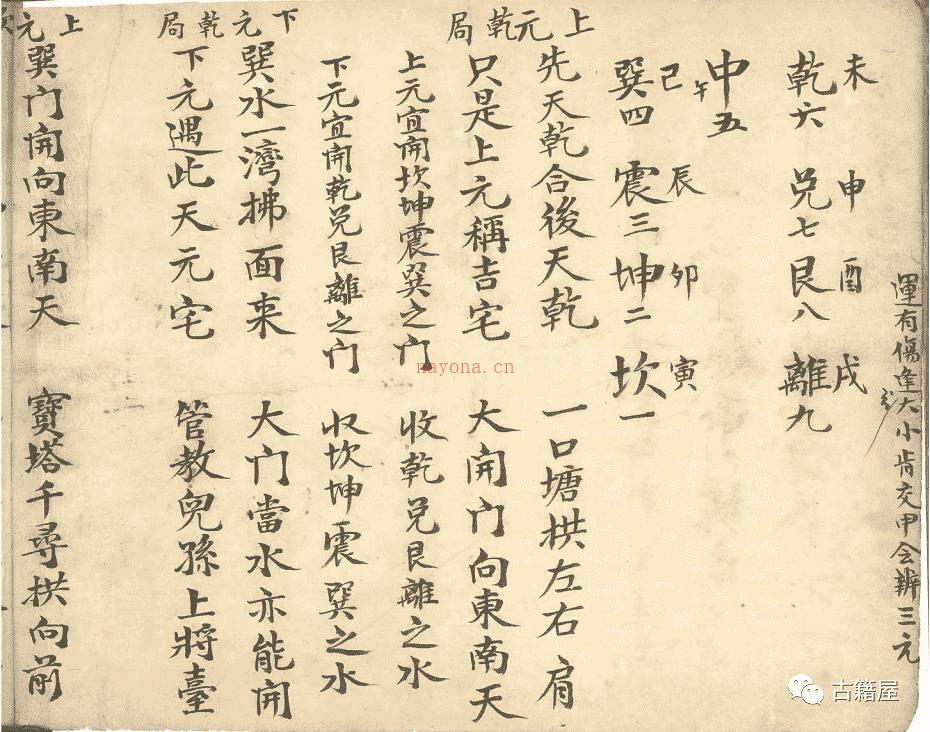 運有傷逢大小肯交甲会辨三元
未 申 酉 戌
乾六 兌七 艮八 離九
中五
午
己 辰 卯 寅
巽四 震三 坤二 坎一
上元乾局
先天乾合後天乾 一口塘拱左右肩
只是上元稱吉宅 大開门向東南天
上元宜開坎坤震巽之门 收乾兌艮離之水
下元宜開乾兌艮離之门 收坎坤震巽之水
下元乾局
巽水一灣拂面来 大门當水亦能開
下元遇此天元宅 管教兒孫上將臺
上元
巽门開向東南天 寶塔千尋拱向前
nayona.cn
古籍屋